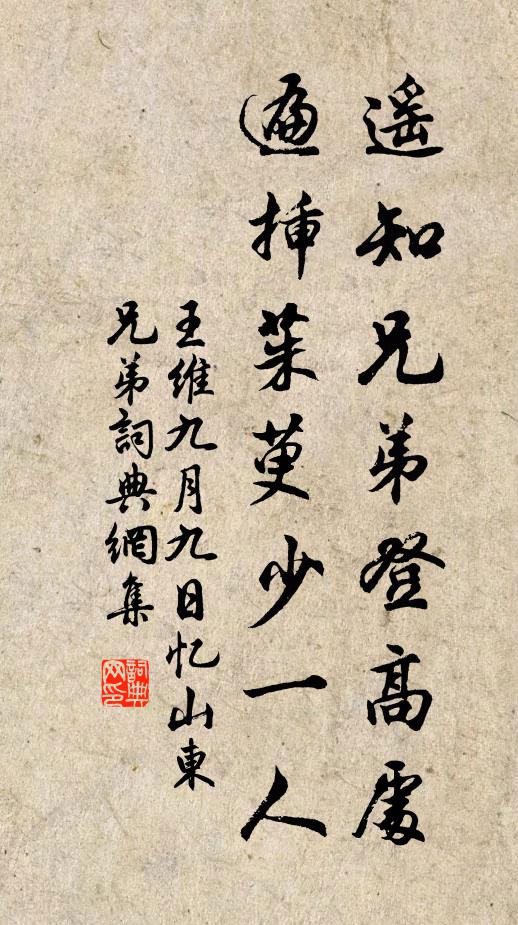 遥知兄弟登高處
遍挿茱萸少一人
王維九月九日忆山東
兄弟詞典網集
詞典
网印